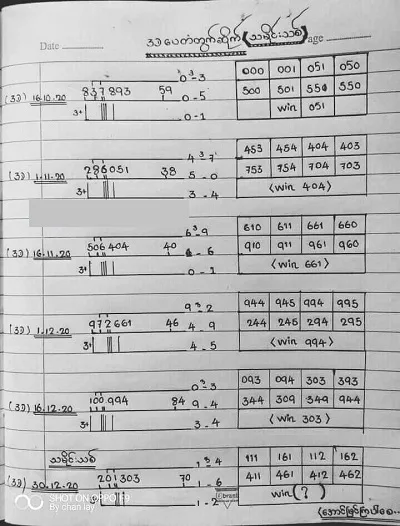 3D ပေတံတွက်ဆိုက် (သမိုင်းသစ်)
Date age
0 3 - 3
(3D) 16.10.20 837893 59 0 - 5
3+ 0 - 1
000 001 051 050
500 501 550 550
win 051
4 3 7
(3D) 1.11.20 286051 38 5 - 0
3+ 3 - 4
453 454 404 403
753 754 704 703
(win 404)
6 3 - 9
(3D) 16.11.20 506404 40 6 - 6
3+ 0 - 1
610 611 661 660
910 911 961 960
(win 661)
9 3 - 2
(3D) 1.12.20 972661 46 4 - 9
3+ 4 - 5
944 945 994 995
244 245 294 295
(win 994)
0 3 - 3
(3D) 16.12.20 100994 84 9 - 4
3+ 3 - 4
093 094 303 393
344 309 349 944
(win 303)
သမိုင်းသစ်
1 3 - 4
(3D) 30.12.20 201303 70 1 - 6
3+ 1 - 2
111 161 112 162
411 461 412 462
win (?)
SHOT ON OPPO F9
By chan lay